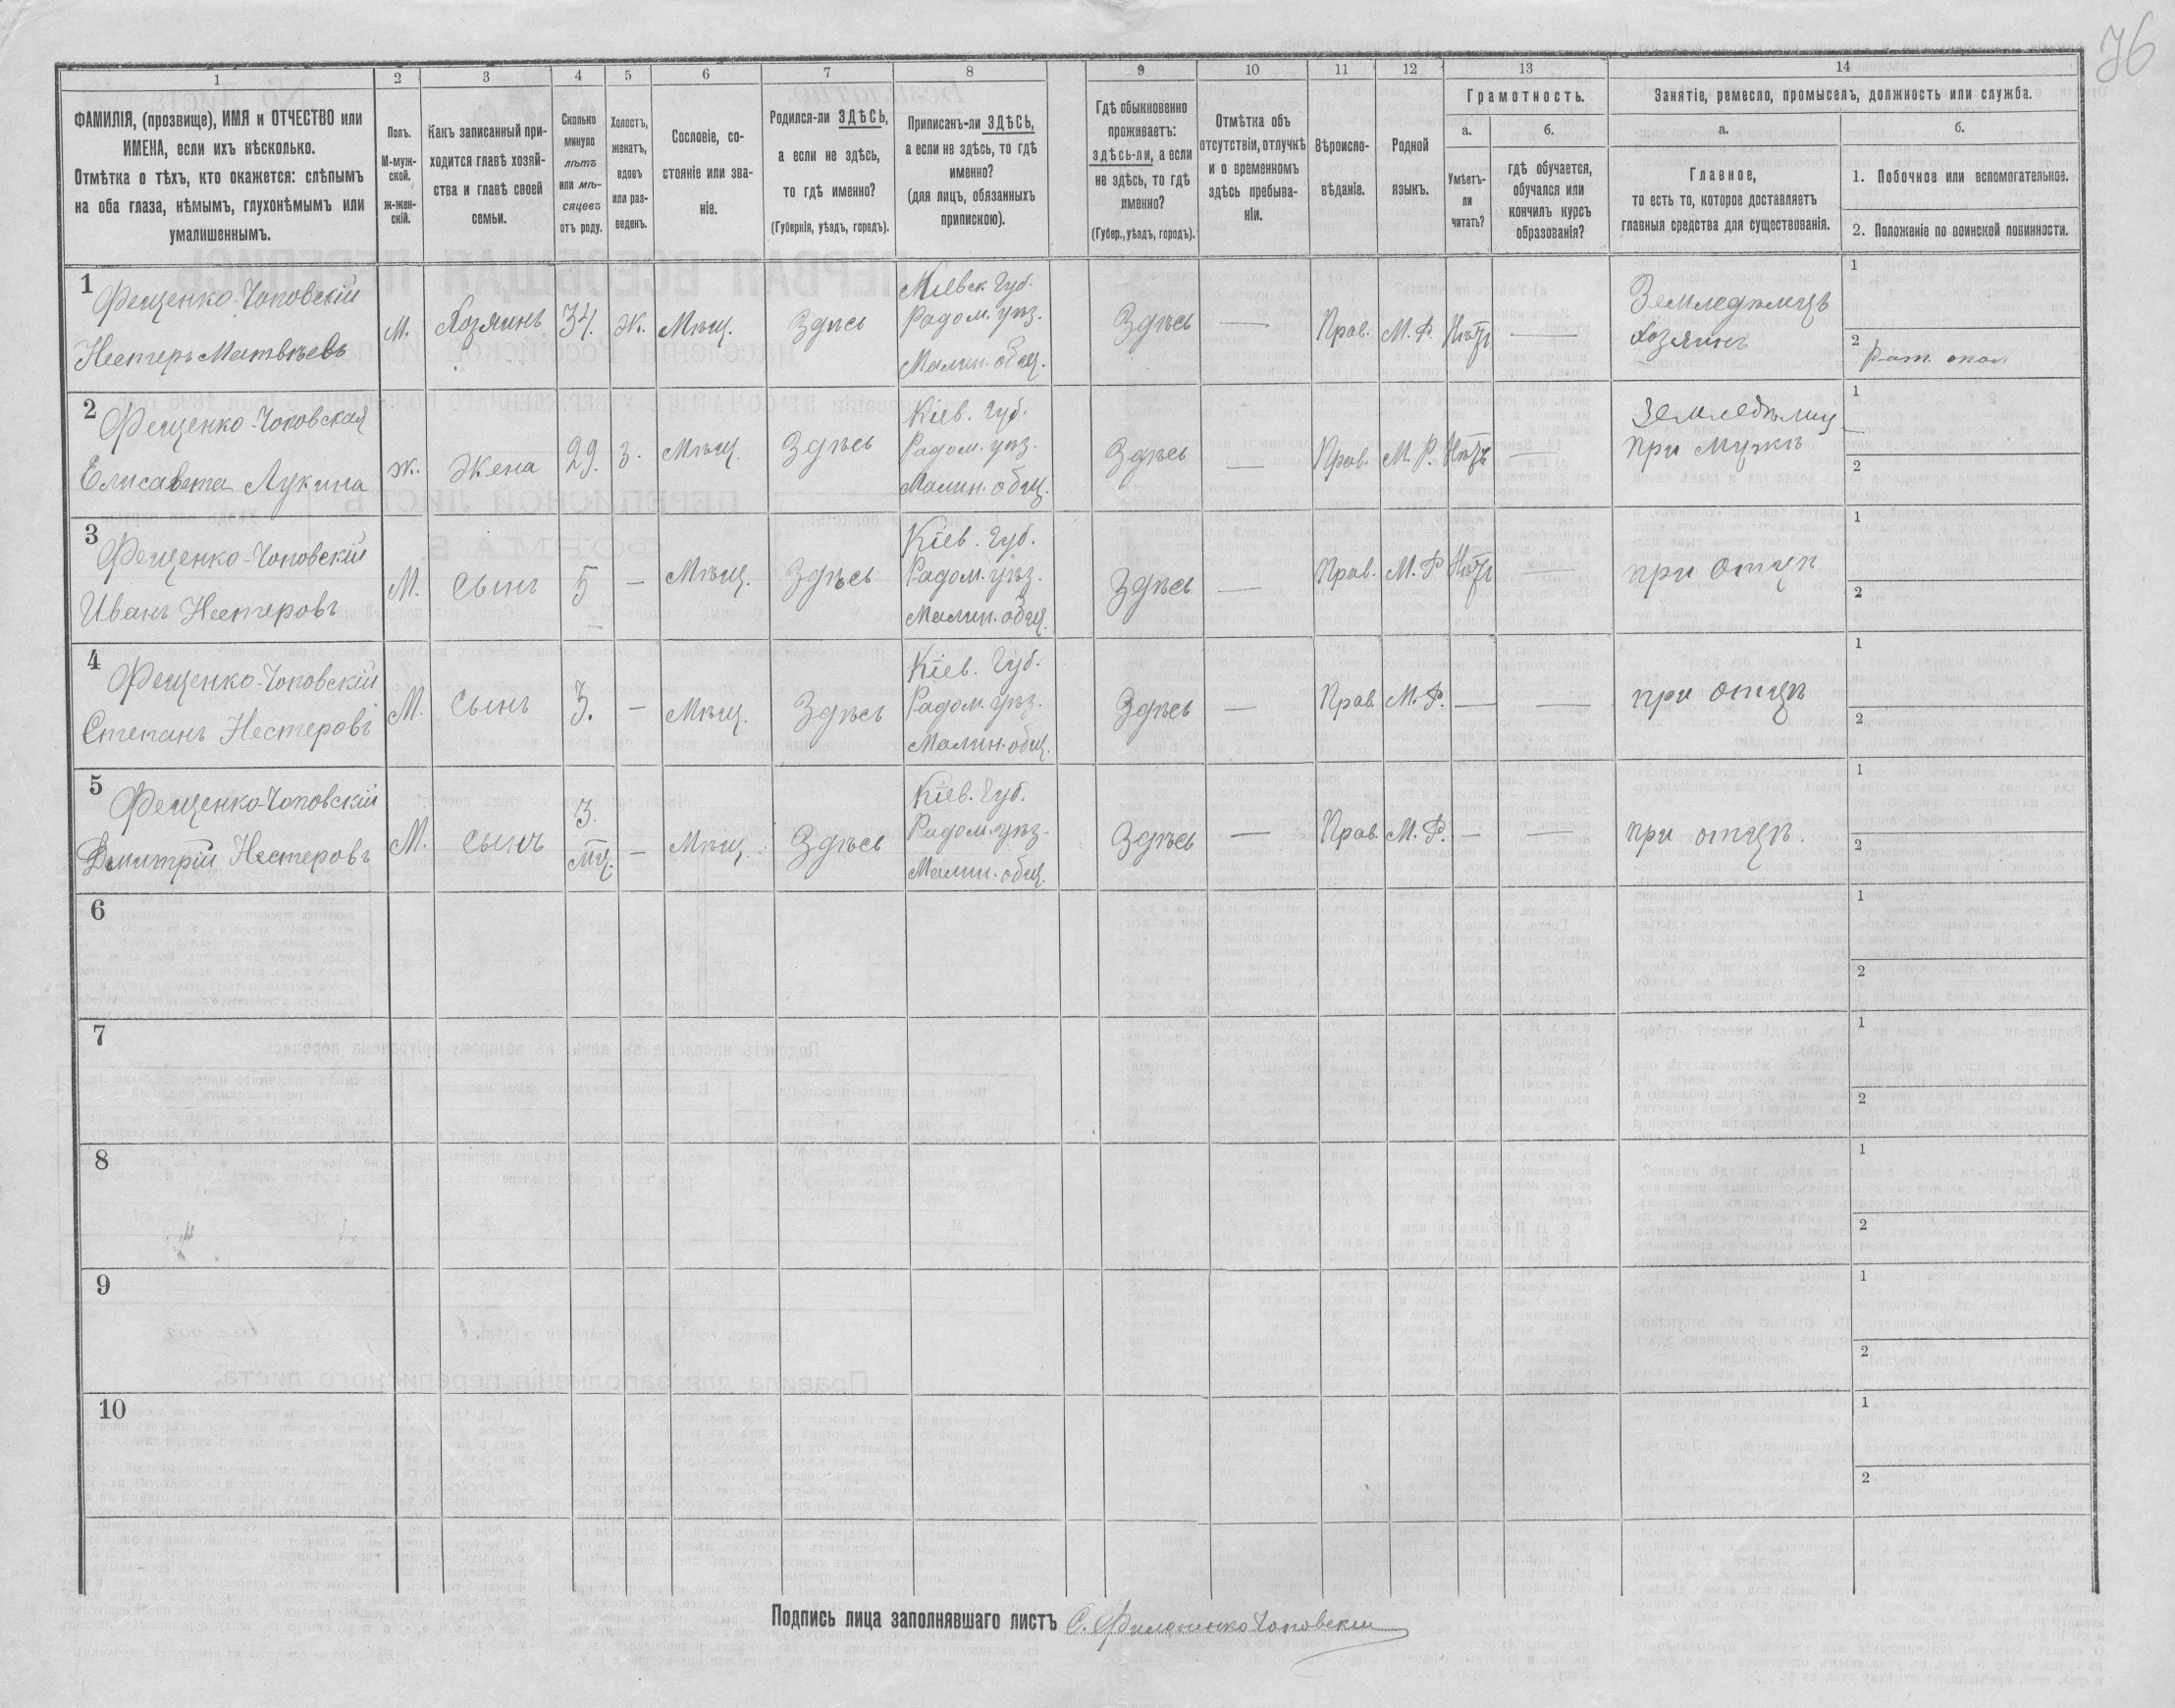 76
1
2
3
4
5
6
7
8
9
10
11
12
13
14
ФАМИЛІЯ, (прозвище), ИМЯ и ОТЧЕСТВО или
ИМЕНА, если ихъ нѣсколько.
Отмѣтка о тѣхъ, кто окажется: слѣпымъ
на оба глаза, нѣмымъ, глухонѣмымъ или
умалишеннымъ.
Полъ.
М-муж-
ской.
ж-жен-
скій.
Какъ записанный при-
ходится главѣ хозяй-
ства и главѣ своей
семьи.
Сколько
минуло
лѣтъ
или мѣ-
сяцевъ
отъ роду.
Холостъ,
женатъ,
вдовъ
или раз-
веденъ.
Сословіе, со-
стояніе или зва-
ніе.
Родился-ли ЗДѢСЬ,
а если не здѣсь,
то гдѣ именно?
(Губернія, уѣздъ, городъ).
Приписанъ-ли ЗДѢСЬ,
а если не здѣсь, то гдѣ
именно?
(для лицъ, обязанныхъ
припискою).
Гдѣ обыкновенно
проживаетъ:
здѣсь-ли, а если
не здѣсь, то гдѣ
именно?
(Губер., уѣздъ, городъ).
Отмѣтка объ
отсутствіи, отлучкѣ
и о временномъ
здѣсь пребыва-
ніи.
Вѣроиспо-
вѣданіе.
Родной
языкъ.
Грамотность.
а.
Умѣетъ-
ли
читать?
б.
гдѣ обучается,
обучался или
кончилъ курсъ
образованія?
Занятіе, ремесло, промыселъ, должность или служба.
а.
Главное,
то есть то, которое доставляетъ
главныя средства для существованія.
б.
1. Побочное или вспомогательное.
2. Положеніе по воинской повинности.
1
Фещенко-Чоповскій
Нестеръ Матвѣевъ
М.
Хозяинъ
34.
Ж.
Мѣщ.
Здѣсь
Кіевск. Губ.
Радом. уѣз.
Малин. общ.
Здѣсь
—
Прав.
М. Р.
Нѣтъ
—
Земледѣлецъ
хозяинъ
1
2
Рат. опол
2
Фещенко-Чоповская
Елисавета Лукина
Ж.
Жена
29.
З.
Мѣщ.
Здѣсь
Кіев. Губ.
Радом. уѣз.
Малин. общ.
Здѣсь
—
Прав.
М. Р.
Нѣтъ
—
Земледѣлиц
при мужѣ
1
—
2
3
Фещенко-Чоповскій
Иванъ Нестеровъ
М.
Сынъ
5
—
Мѣщ.
Здѣсь
Кіев. Губ.
Радом. уѣз.
Малин. общ.
Здѣсь
—
Прав.
М. Р
Нѣтъ
—
при отцѣ
1
2
4
Фещенко-Чоповскій
Степанъ Нестеровъ
М.
Сынъ
3.
—
Мѣщ.
Здѣсь
Кіев. Губ.
Радом. уѣз.
Малин. общ.
Здѣсь
—
Прав.
М. Р.
—
—
при отцѣ
1
2
5
Фещенко-Чоповскій
Дмитрій Нестеровъ
М.
Сынъ
3.
мц.
—
Мѣщ.
Здѣсь
Кіев. Губ.
Радом. уѣз.
Малин. общ.
Здѣсь
—
Прав.
М. Р.
—
—
при отцѣ.
1
2
6
1
2
7
1
2
8
1
2
9
1
2
10
1
2
Подпись лица заполнявшаго листъ С. Чоповскій